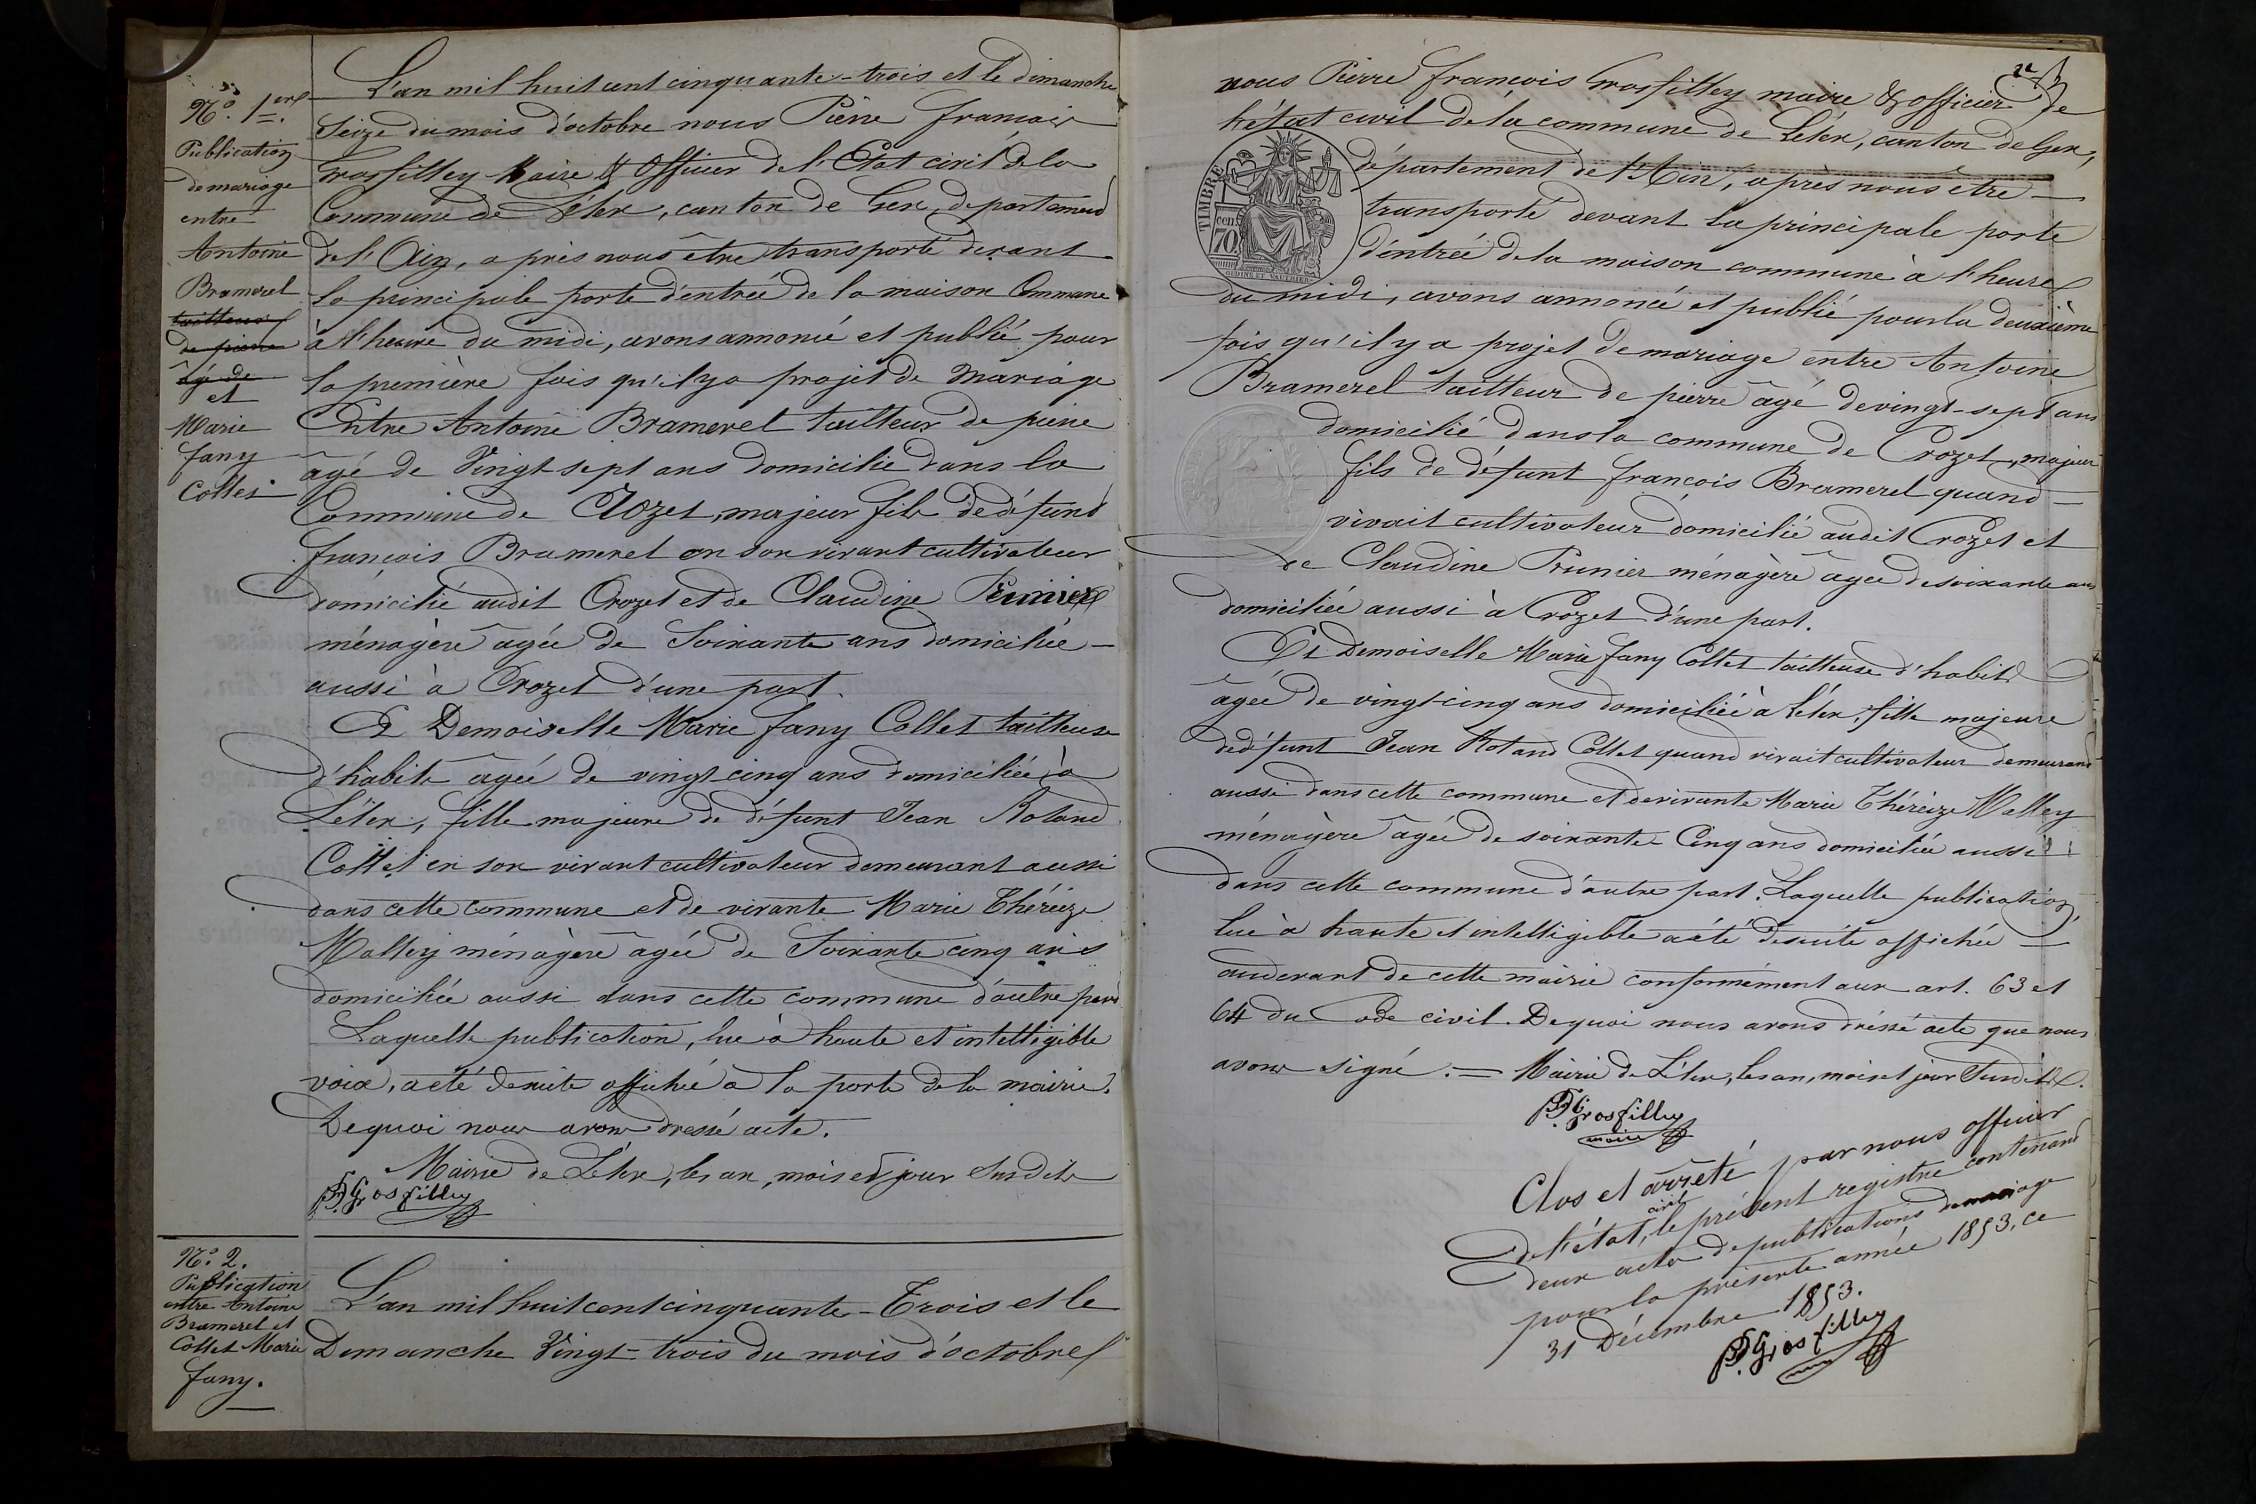 N.° 1.ere
Publication
de mariage
entre
Antoine
Bramerel
tailleur
de pierre
âgé de
et
Marie
fany
Collet
L'an mil huit cent cinquante-trois et le dimanche
Seize du mois d'octobre nous Pierre françois
Grosfilley Maire & Officier de l'Etat civil de la
Commune de Lélex, canton de Gex, département
de l'Ain, après nous être transporté devant
la principale porte d'entrée de la maison Commune
à l'heure du midi, avons annoncé et publié pour
la première fois qu'il y a projet de Mariage
Entre Antoine Bramerel tailleur de pierre
âgé de Vingt sept ans domicilié dans la
Commune de Crozet, majeur fils de défunt
françois Bramerel en son vivant cultivateur
domicilié audit Crozet et de Claudine Prunier
ménagère agée de Soixante ans domiciliée —
aussi à Crozet d'une part.
Et Demoiselle Marie fany Collet tailleuse
d'habits agée de vingt-cinq ans domiciliée à
Lélex, fille majeure de défunt Jean Roland
Collet en son vivant cultivateur demeurant aussi
dans cette commune et de vivante Marie Thérèize
Malley ménagère agée de Soixante cinq ans
domiciliée aussi dans cette commune d'autre part
Laquelle publication, lue à haute et intelligible
voix, a été de suite affichée à la porte de la mairie.
De quoi nous avons dressé acte.
Mairie de Lélex, les an, mois et jour Susdits
P. F. Grosfilley
N.° 2.
Publication
entre Antoine
Bramerel et
Collet Marie
fany.
L'an mil huit cent cinquante-Trois et le
Dimanche Vingt-trois du mois d'octobre
nous Pierre françois Grosfilley maire & officier de
l'état civil de la commune de Lélex, canton de Gex,
département de l'Ain, après nous être —
transporté devant la principale porte
d'entrée de la maison commune à l'heure
du midi, avons annoncé et publié pour la deuxième
fois qu'il y a projet de mariage entre Antoine
Bramerel tailleur de pierre âgé de vingt-sept ans
domicilié dans la commune de Crozet, majeur
fils de défunt françois Bramerel quand —
vivait cultivateur domicilié audit Crozet et
de Claudine Prunier ménagère agée de soixante ans
domiciliée aussi à Crozet d'une part.
Et Demoiselle Marie fany Collet tailleuse d'habits
âgée de vingt-cinq ans domiciliée à Lélex, fille majeure
de défunt Jean Roland Collet quand vivait cultivateur demeurant
aussi dans cette commune et de vivante Marie Thérèize Malley
ménagère agée de soixante-Cinq ans domiciliée aussi
dans cette commune d'autre part. Laquelle publication,
lue à haute et intelligible a été de suite affichée —
au devant de cette mairie conformément aux art. 63 et
64 du Code civil. De quoi nous avons dréssé acte que nous
avons signé. — Mairie de Lélex, les an, mois et jour Susdits.
P. F. Grosfilley
maire
Clos et arrêté par nous officier
de l'état civil, le présent registre contenant
deux actes de publications de mariage
pour la présente année 1853, ce
31 Décembre 1853.
P. F. Grosfilley
TIMBRE
cen
70
OUDINÉ ET VAUTHIER